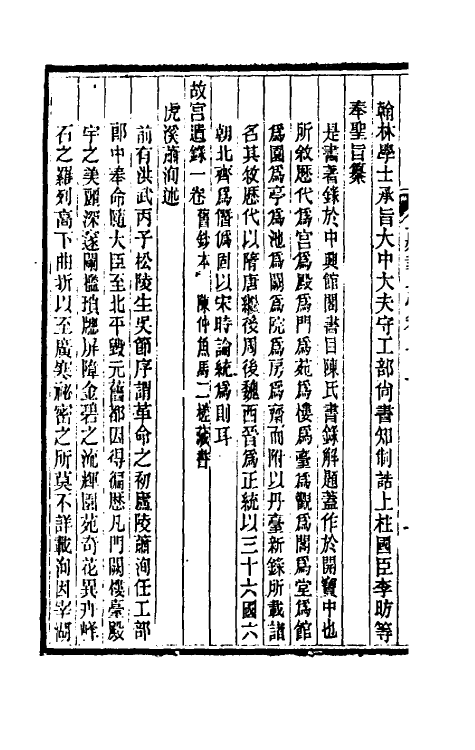 翰林學士承旨大中大夫守工部尚書知制誥上柱國臣李昉等
奉聖旨纂
是書著錄於中興館閣書目陳氏書錄解題蓋作於開寶中也
所敘歷代爲宮爲殿爲門爲苑爲樓爲臺爲觀爲閣爲堂爲館
爲園爲亭爲池爲闕爲院爲房爲齋而附以丹臺新錄所載諸
名其敘歷代以隋唐繼後周後魏西晉爲正統以三十六國六
朝北齊爲僭僞固以宋時論統爲則耳
故宮遺錄一卷 舊鈔本 陳仲魚馬二槎藏書
虎溪蕭洵述
前有洪武丙子松陵生吏節序謂革命之初廬陵蕭洵任工部
郎中奉命隨大臣至北平毀元舊都因得徧歷凡門闕樓臺殿
宇之美麗深邃闌檻瑣牕屏障金碧之流輝園苑奇花異卉峰
石之羅列高下曲折以至廣寒祕密之所莫不詳載洵因宰湖